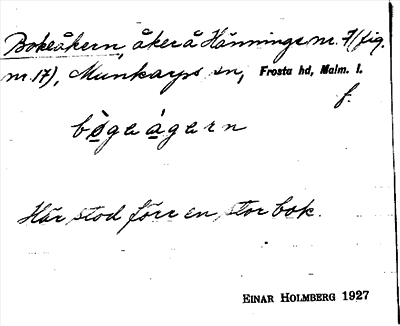 Bokeåkern, åker å Hänninge nr. 7 (fig.
nr. 17), Munkarps sn, Frosta hd, Malm. l.
f.
bo̠gea̠gern
Här stod förr en stor bok.
EINAR HOLMBERG 1927